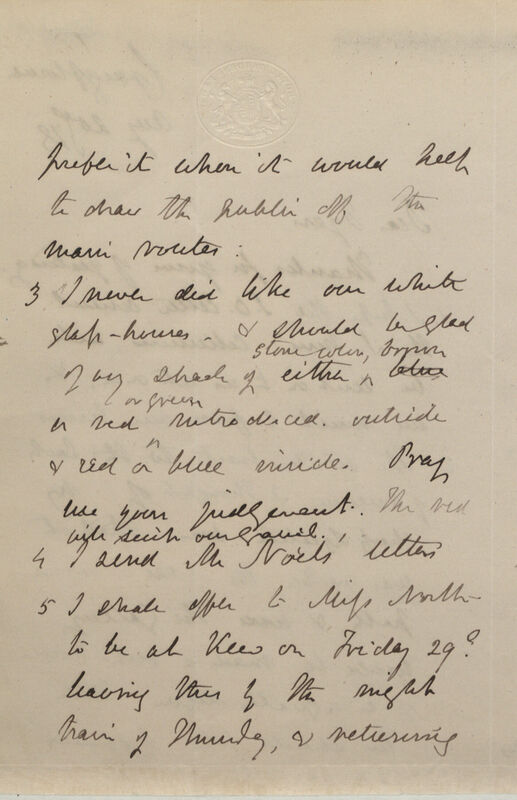 prefer it when it would help
to draw the public off the
main routes.
3 I never did like our white
glass-houses - & should be glad
stone color, brown
of any shade of either, or blue
or green
or red introduced. outside
& red or blue inside. Pray
use your judgement. The red
will suit our gravel.
4 I send Mr Noels letters
5 I shall offer to Miss North
to be at Kew on Friday 29th
leaving this by the night
train of Thursday, & returning